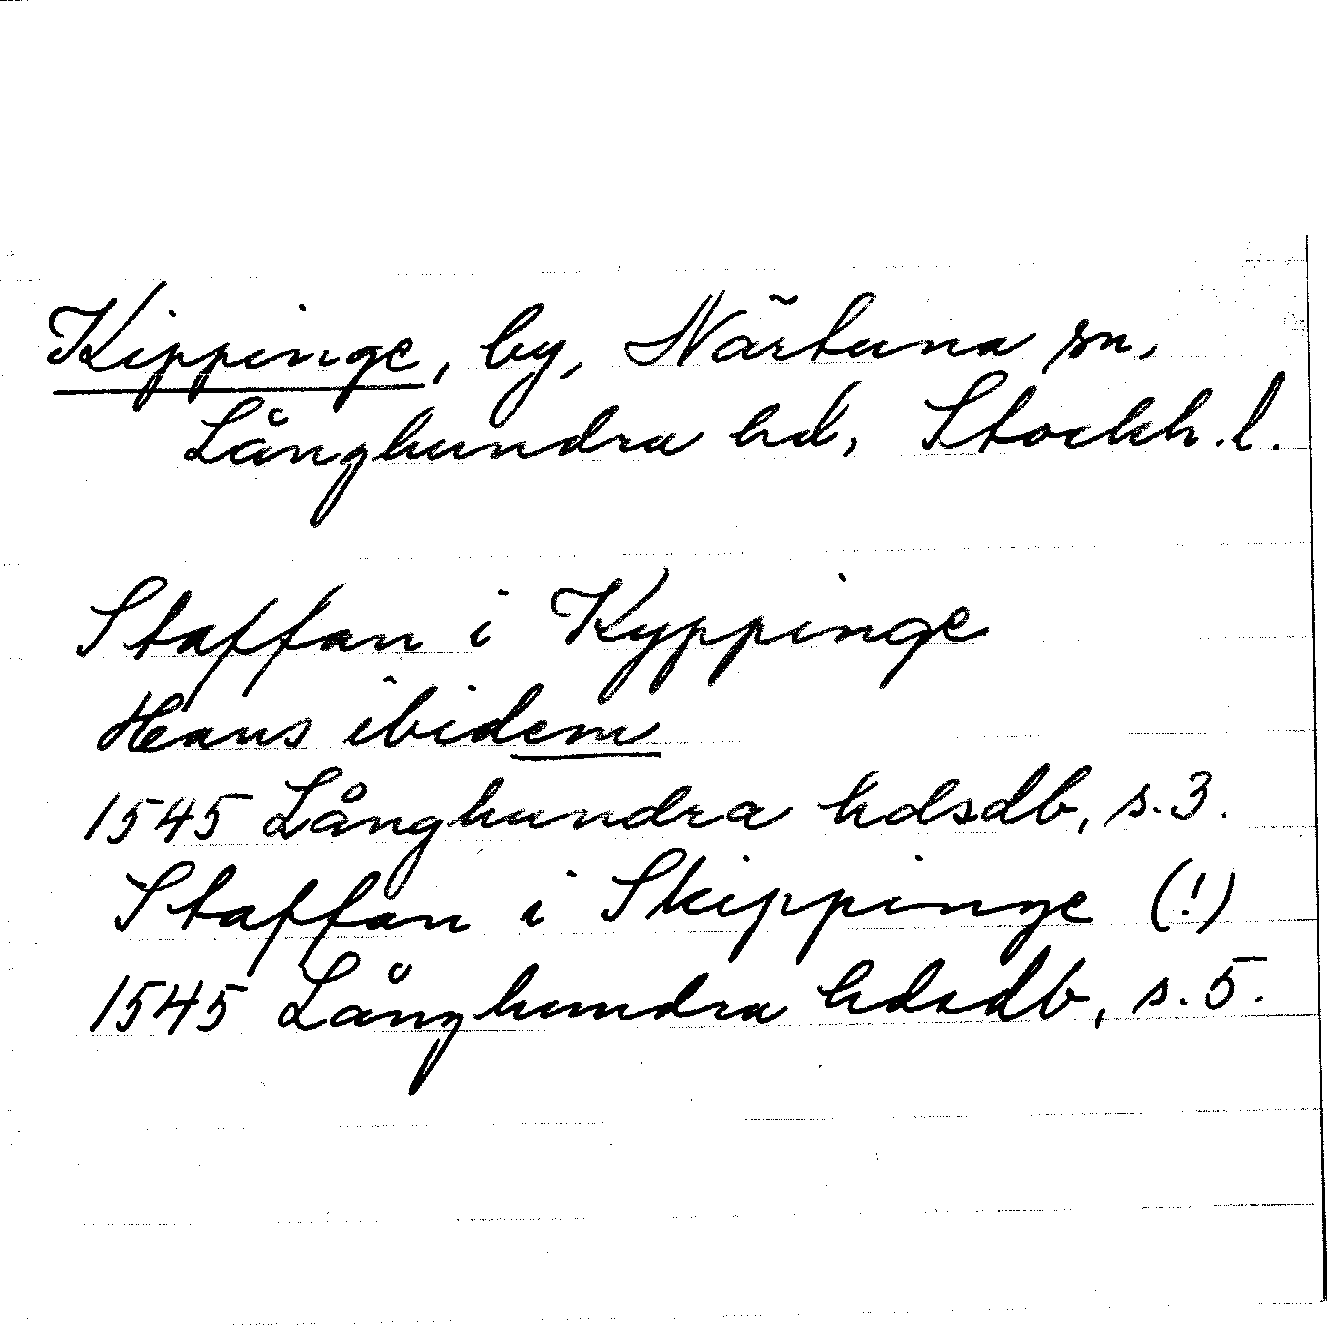 Kippinge, by, Närtuna sn,
Långhundra hd, Stockh.l.
Staffan i Kyppinge
Hans ibidem
1545 Långhundra hdsdb, s.3.
Staffan i Skippinge (!)
1545 Långhundra hdsdb, s.5.